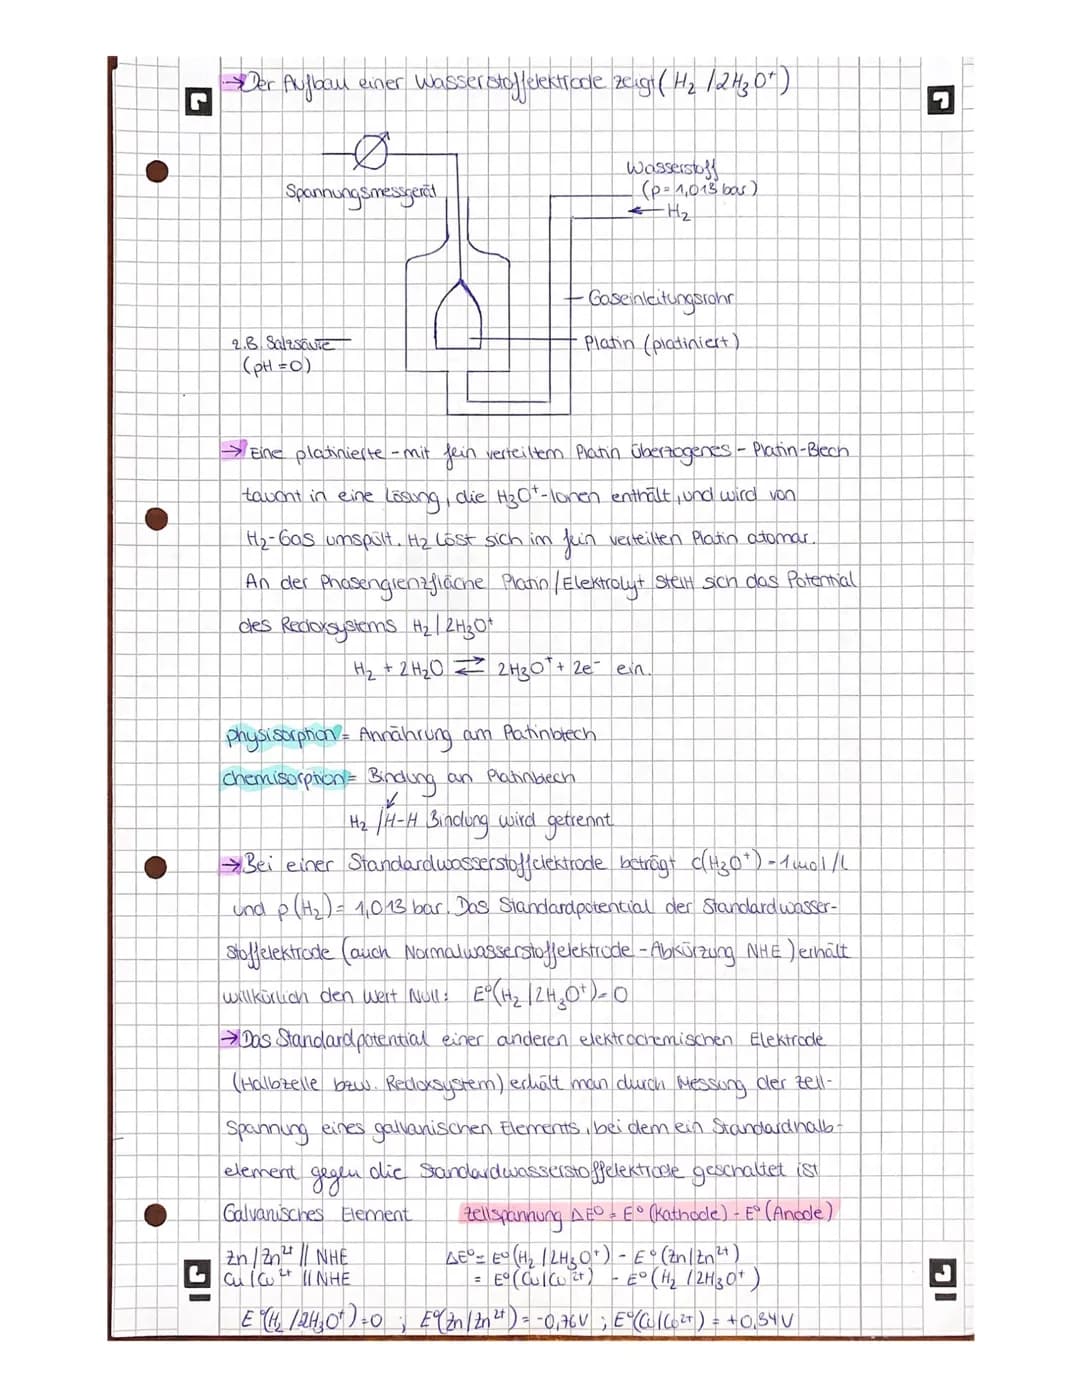 →Der Aufbau einer Wasserstoffelektrode zeigt (H₂ /2H₃O⁺)
Spannungsmessgerät
Wasserstoff
(p=1,013 bar)
←H₂
Gaseinleitungsrohr
z.B. Salzsäure
Platin (platiniert)
(pH=0)
→ Eine platinierte - mit fein verteiltem Platin überzogenes - Platin-Blech
taucht in eine Lösung, die H₃O⁺-Ionen enthält, und wird von
H₂-Gas umspült. H₂ löst sich im fein verteilten Platin atomar.
An der Phasengrenzfläche Platin/Elektrolyt stellt sich das Potential
des Redoxsystems H₂/2H₃O⁺
H₂ + 2H₂O ⇄ 2H₃O⁺ + 2e⁻ ein.
physisorption = Annährung am Platinblech
chemisorption = Bindung an Platinblech
H₂ /H-H Bindung wird getrennt
→Bei einer Standardwasserstoffelektrode beträgt c(H₃O⁺) = 1mol/L
und p(H₂) = 1,013 bar. Das Standardpotential der Standardwasser-
stoffelektrode (auch Normalwasserstoffelektrode - Abkürzung NHE) erhält
willkürlich den Wert Null: E°(H₂ /2H₃O⁺)=0
→Das Standardpotential einer anderen elektrochemischen Elektrode
(Halbzelle bzw. Redoxsystem) erhält man durch Messung der Zell-
spannung eines galvanischen Elements, bei dem ein Standardhalb-
element gegen die Standardwasserstoffelektrode geschaltet ist
Galvanisches Element Zellspannung ΔE° = E° (Kathode) - E° (Anode)
Zn/Zn²⁺ // NHE ΔE° = E° (H₂ /2H₃O⁺) - E° (Zn/Zn²⁺)
Cu/Cu²⁺ // NHE = E° (Cu/Cu²⁺) - E° (H₂ /2H₃O⁺)
E°(H₂ /2H₃O⁺)=0 ; E°(Zn/Zn²⁺) = -0,76V ; E°(Cu/Cu²⁺) = +0,34V